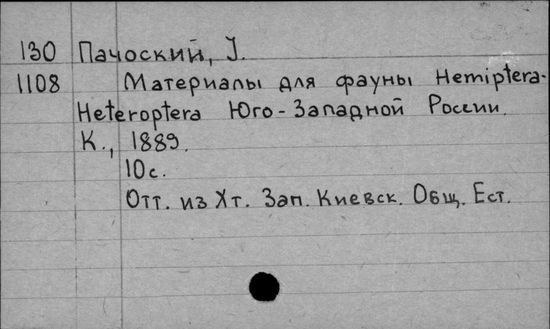 130 Пачоский, J.
1108 Материалы для фауны Hemiptera-
Heteroptera Юго-Западной России.
К., 1889.
10с.
Отт. из Xт. Зап. Киевск. Общ. Ест.